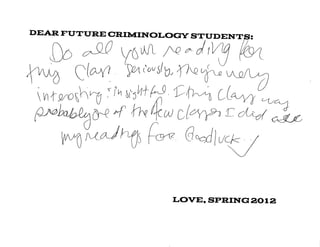 DEAR FUTURE CRIMINOLOGY STUDENTS:
Do all your reading for
this class. Seriously, they're very
interesting + insightful. This class was
probably one of the few classes I did all
my readings for. Goodluck
LOVE, SPRING 2012